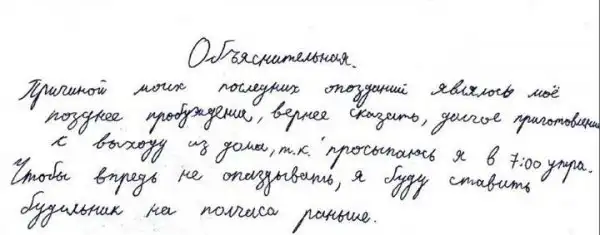 Объяснительная.
Причиной моих последних опозданий являлось моё
позднее пробуждение, вернее сказать, долгое приготовление
к выходу из дома, т.к. просыпаюсь я в 7:00 утра.
Чтобы впредь не опаздывать, я буду ставить
будильник на полчаса раньше.